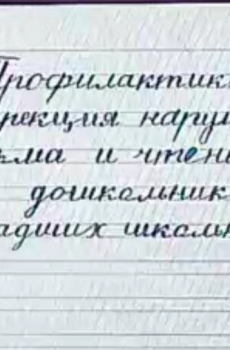 Профилактик
рекция нару
ьма и чтен
дошкольник
адших школь